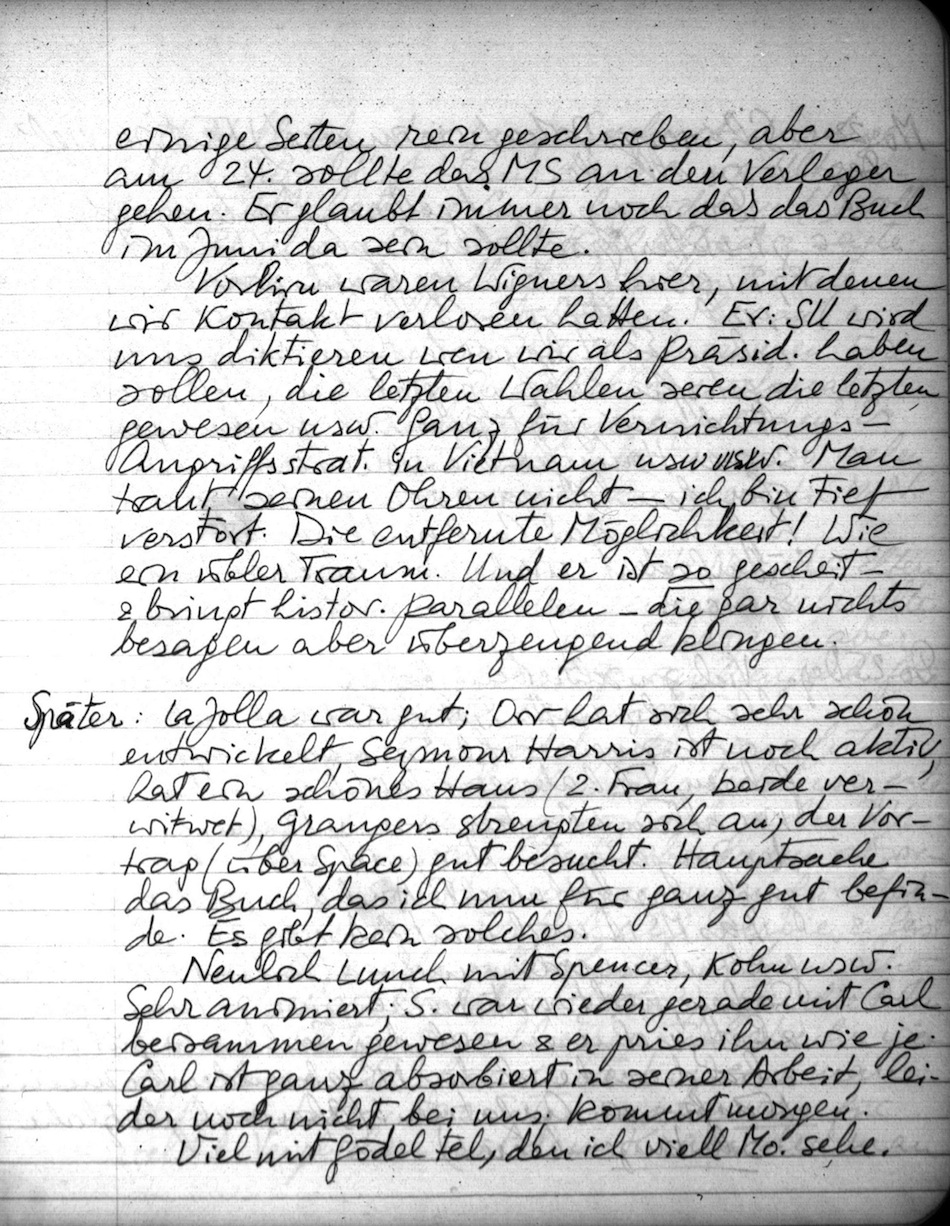 einige Seiten rein geschrieben, aber
am 24. sollte das MS an den Verleger
gehen. Er glaubt immer noch das das Buch
im Juni da sein sollte.
Vorhin waren Wigners hier, mit denen
wir Kontakt verloren hatten. Er: SU wird
uns diktieren wen wir als Präsid. haben
sollen, die letzten Wahlen seien die letzten
gewesen usw. Ganz für Vernichtungs-
Angriffsstrat. in Vietnam usw usw. Man
traut seinen Ohren nicht — ich bin tief
verstört. Die entfernte Möglichkeit! Wie
ein übler Traum. Und er ist so gescheit —
& bringt histor. Parallelen — die gar nichts
besagen aber überzeugend klingen.
Später: La Jolla war gut; Orr hat sich sehr schön
entwickelt, Seymour Harris ist noch aktiv,
hat ein schönes Haus (2. Frau, beide ver-
witwet), Grangers strengten sich an, der Vor-
trag (über Space) gut besucht. Hauptsache
das Buch, das ich nun für ganz gut befin-
de. Es gibt kein solches.
Neulich Lunch mit Spencer, Kohn usw.
Sehr animiert; S. war wieder gerade mit Carl
beisammen gewesen & er pries ihn wie je.
Carl ist ganz absorbiert in seiner Arbeit, lei-
der noch nicht bei uns; kommt morgen.
Viel mit Gödel tel, den ich viell Mo. sehe.